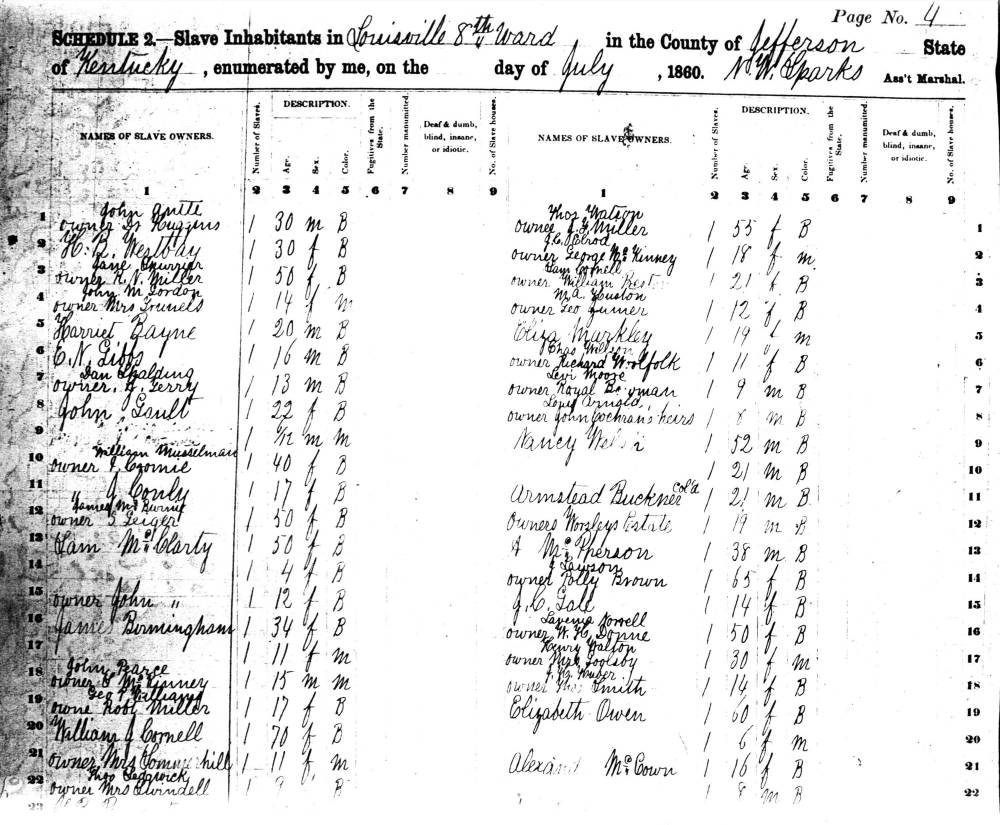 Page No. 4
SCHEDULE 2.—Slave Inhabitants in Louisville 8th Ward in the County of Jefferson State
of Kentucky, enumerated by me, on the day of July, 1860. N. W. Sparks Ass't Marshal.
NAMES OF SLAVE OWNERS. Number of Slaves. DESCRIPTION. Age. Sex. Color. Fugitives from the State. Number manumitted. Deaf & dumb, blind, insane, or idiotic. No. of Slave houses.
1 2 3 4 5 6 7 8 9
John
1 owner Huggins 1 30 m B
2 H. R. Westbay 1 30 f B
Jane
3 owner R. N. Miller 1 50 f B
John M Gordon
4 owner Mrs 1 14 f m
5 Harriet Bayne 1 20 m B
6 E. N. Gibbs 1 16 m B
Dan Spalding
7 owner Terry 1 13 m B
8 John Gault 1 22 f B
9 1 m m
William Musselman
10 owner J. Cromie 1 40 f B
11 J Conly 1 17 f B
James
12 owner S Geiger 1 50 f B
13 Sam McClarty 1 50 f B
14 1 4 f B
15 owner John " 1 12 f B
16 James Birmingham 1 34 f B
17 1 11 f m
John Pearce
18 owner S McKinney 1 15 m m
Geo P Williams
19 owne Robt Miller 1 17 f B
20 William J Cornell 1 70 f B
21 owner Mrs Sommerhill 1 11 f m
Thos Sedgwick
22 owner Mrs Swindell 1 9 B
23
NAMES OF SLAVE OWNERS. Number of Slaves. DESCRIPTION. Age. Sex. Color. Fugitives from the State. Number manumitted. Deaf & dumb, blind, insane, or idiotic. No. of Slave houses.
1 2 3 4 5 6 7 8 9
Thos Watson
owner Miller 1 55 f B 1
J. C. Elrod
owner George McKinney 1 18 f m 2
Sam Cornell
owner William 1 21 f B 3
M. A. Huston
owner Geo 1 12 f B 4
Eliza Markley 1 19 f m 5
Chas Wilson
owner Richard Woolfolk 1 11 f B 6
Levi Moore
owner Royal 1 9 m B 7
Arnold
owner John Cochran's heirs 1 8 m B 8
Nancy 1 52 m B 9
1 21 m B 10
Armstead Buckner col'd 1 21 m B 11
Owners Worsleys Estate 1 19 m B 12
McPherson 1 38 m B 13
J Lawson
owner Polly Brown 1 65 f B 14
J. C. Gall 1 14 f B 15
Lavenia
owner W. H. Donne 1 50 f B 16
Henry Walton
owner Mrs Goolsby 1 30 f m 17
Huber
owner Thos Smith 1 14 f B 18
Elizabeth Owen 1 60 f B 19
1 6 f m 20
Alexand McCown 1 16 f B 21
1 8 m B 22